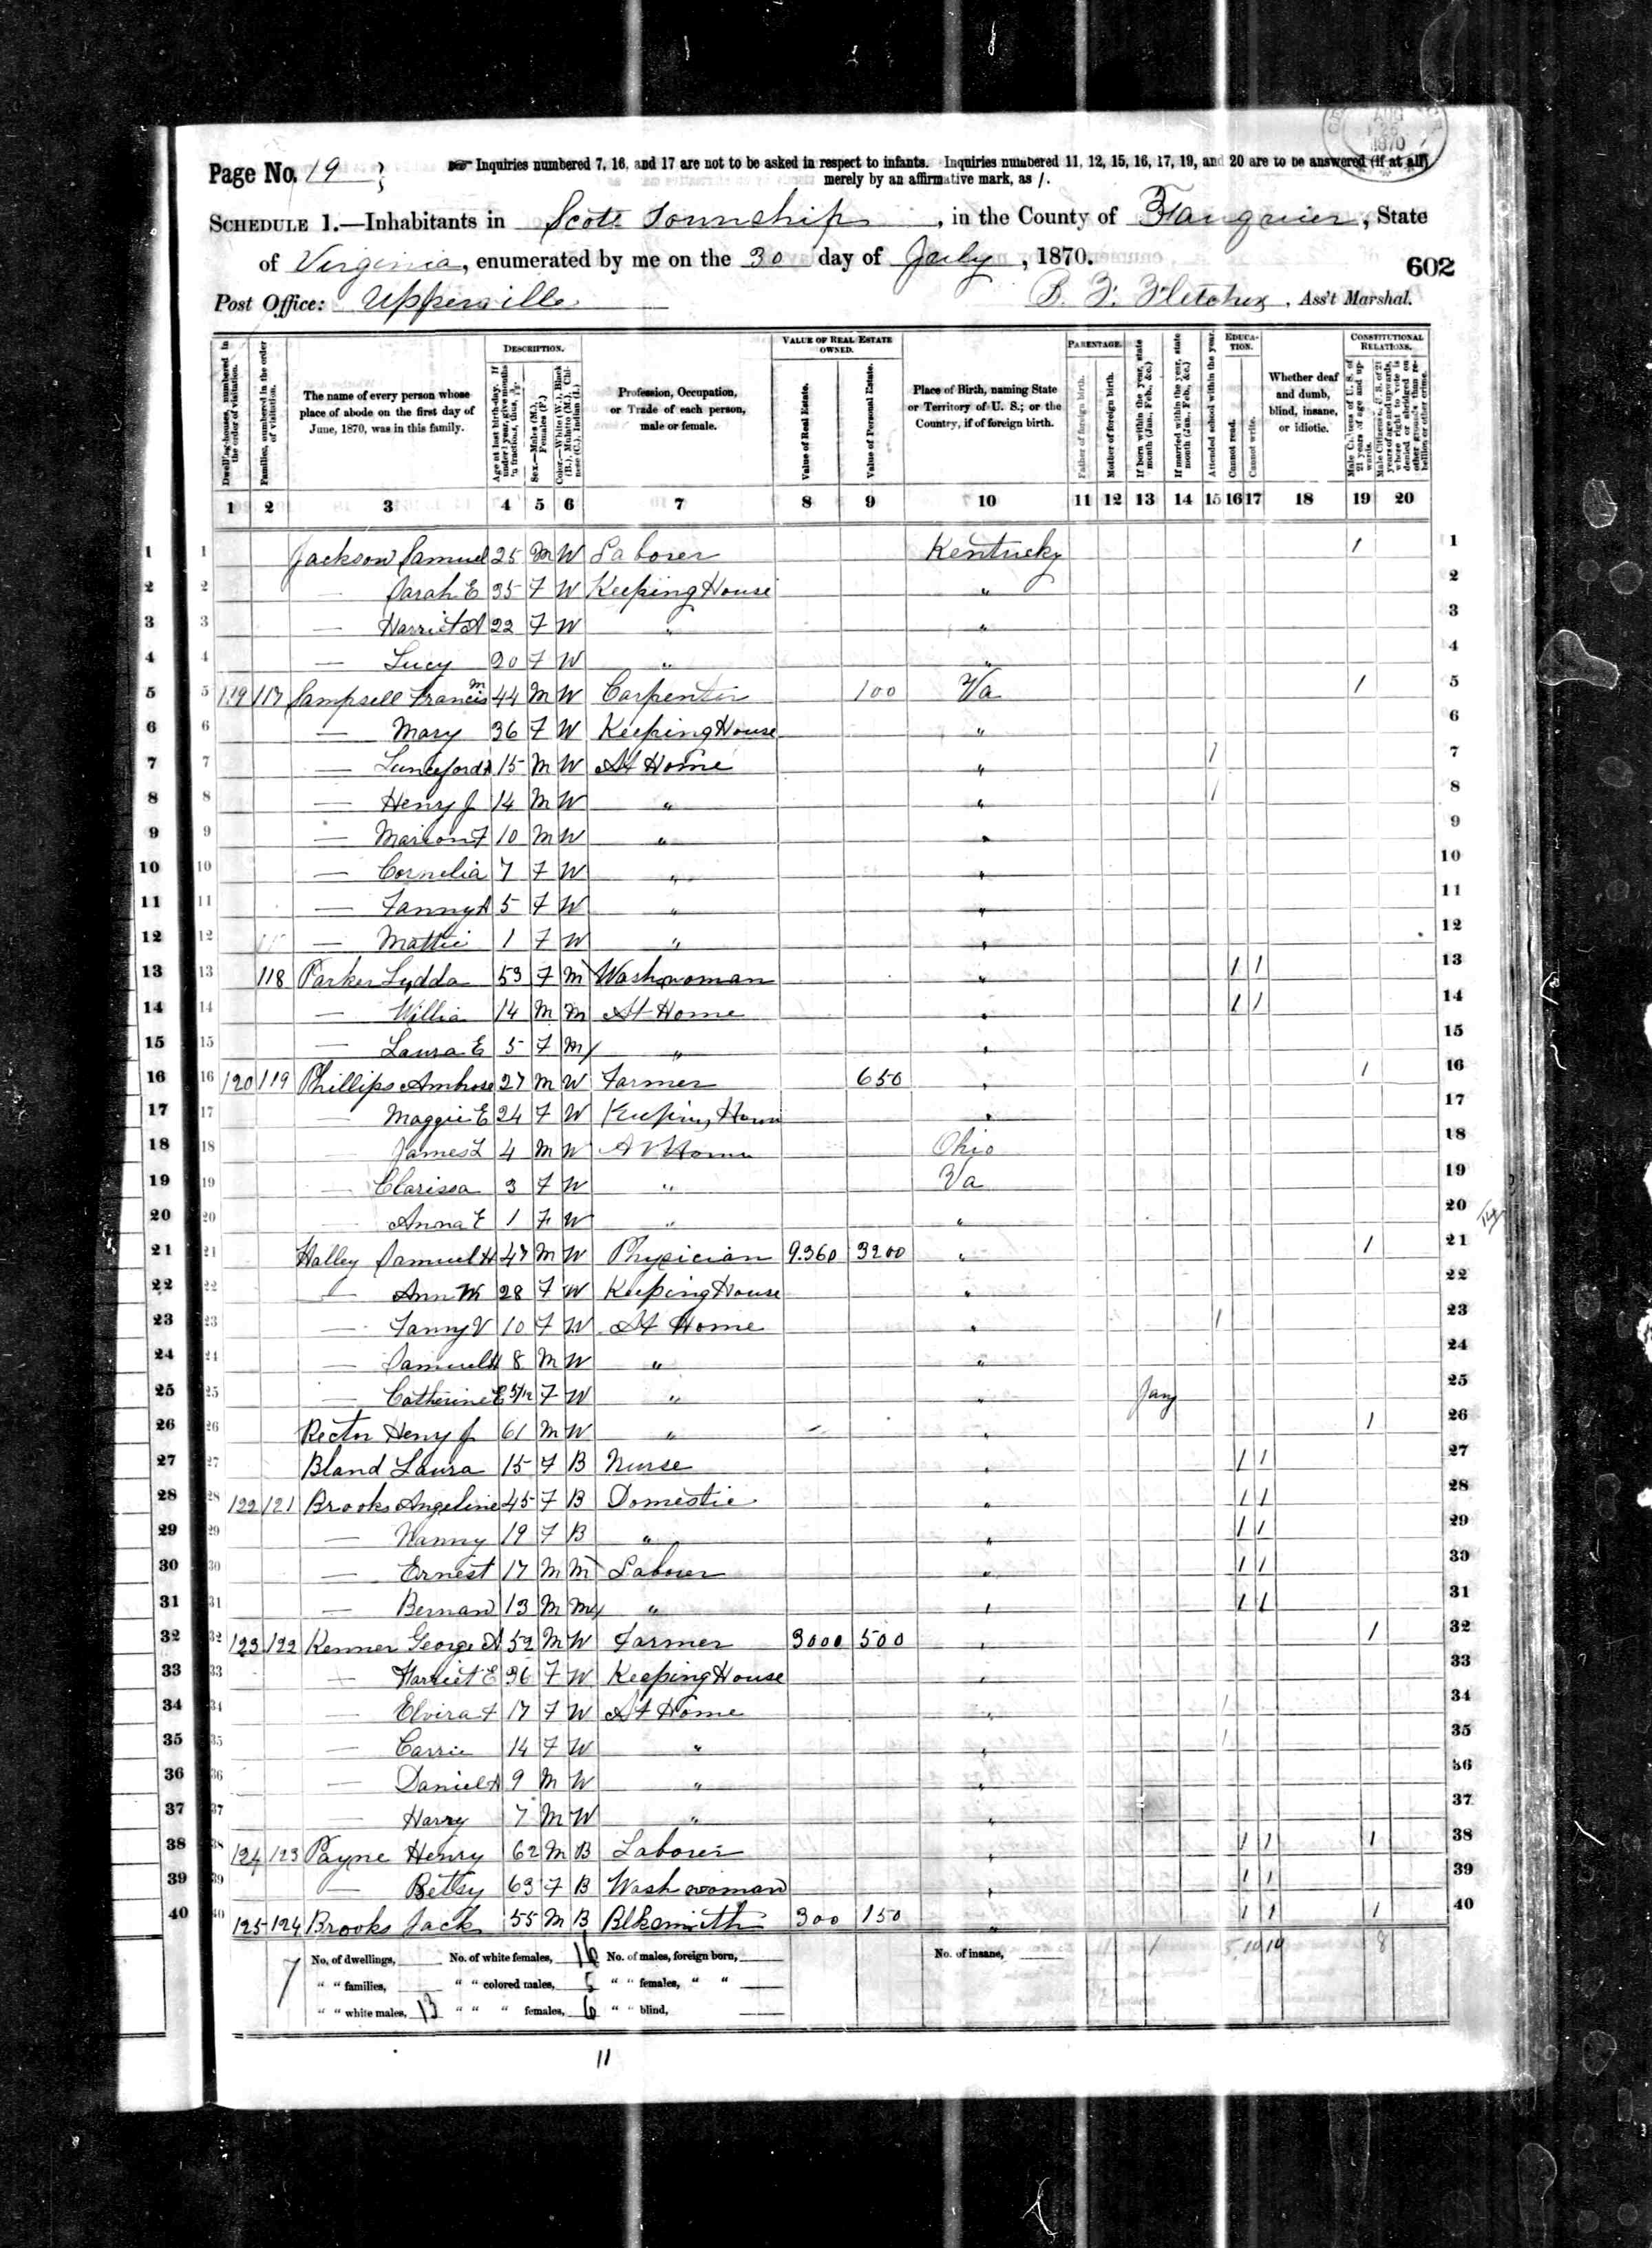 AUG 25 1870
Page No. 19
Inquiries numbered 7, 16, and 17 are not to be asked in respect to infants. Inquiries numbered 11, 12, 15, 16, 17, 19, and 20 are to be answered (if at all)
merely by an affirmative mark, as /.
SCHEDULE 1.—Inhabitants in Scott Township, in the County of Fauquier, State
of Virginia, enumerated by me on the 30 day of July, 1870.
602
Post Office: Upperville B. F. Fletcher, Ass't Marshal.
Dwelling-houses, numbered in the order of visitation.
Families, numbered in the order of visitation.
The name of every person whose place of abode on the first day of June, 1870, was in this family.
DESCRIPTION.
Age at last birth-day. If under 1 year, give months in fractions, thus, 3/12.
Sex.—Males (M.), Females (F.)
Color.—White (W.), Black (B.), Mulatto (M.), Chinese (C.), Indian (I.)
Profession, Occupation, or Trade of each person, male or female.
VALUE OF REAL ESTATE OWNED.
Value of Real Estate.
Value of Personal Estate.
Place of Birth, naming State or Territory of U. S.; or the Country, if of foreign birth.
PARENTAGE.
Father of foreign birth.
Mother of foreign birth.
If born within the year, state month (Jan., Feb., &c.)
If married within the year, state month (Jan., Feb., &c.)
Attended school within the year.
EDUCATION.
Cannot read.
Cannot write.
Whether deaf and dumb, blind, insane, or idiotic.
CONSTITUTIONAL RELATIONS.
Male Citizens of U. S. of 21 years of age and upwards.
Male Citizens of U. S. of 21 years of age and upwards, whose right to vote is denied or abridged on other grounds than rebellion or other crime.
1 2 3 4 5 6 7 8 9 10 11 12 13 14 15 16 17 18 19 20
1 1 Jackson Samuel 25 M W Laborer Kentucky 1 1
2 2 — Sarah E 35 F W Keeping House " 2
3 3 — Harriet A 22 F W " " 3
4 4 — Lucy 20 F W " " 4
5 5 119 117 Sampsell Francis M 44 M W Carpenter 100 Va 1 5
6 6 — Mary 36 F W Keeping House " 6
7 7 — Lunceford A 15 M W At Home " 1 7
8 8 — Henry J 14 M W " " 1 8
9 9 — Marion F 10 M W " " 9
10 10 — Cornelia 7 F W " " 10
11 11 — Fanny A 5 F W " " 11
12 12 — Mattie 1 F W " " 12
13 13 118 Parker Lydda 53 F M Washwoman " 1 1 13
14 14 — Willie 14 M M At Home " 1 1 14
15 15 — Laura E 5 F M " " 15
16 16 120 119 Phillips Ambrose 27 M W Farmer 650 " 1 16
17 17 — Maggie E 24 F W Keeping House " 17
18 18 — James L 4 M W At Home Ohio 18
19 19 — Clarissa 3 F W " Va 19
20 20 — Anna E 1 F W " " 20
21 21 Halley Samuel H 47 M W Physician 9.360 3200 " 1 21
22 22 — Ann M 28 F W Keeping House " 22
23 23 — Fanny V 10 F W At Home " 1 23
24 24 — Samuel H 8 M W " " 24
25 25 — Catherine E 5/12 F W " " Jany 25
26 26 Rector Henry J 61 M W " " 1 26
27 27 Bland Laura 15 F B Nurse " 1 1 27
28 28 122 121 Brooks Angeline 45 F B Domestic " 1 1 28
29 29 — Nanny 19 F B " " 1 1 29
30 30 — Ernest 17 M M Laborer " 1 1 30
31 31 — Bernard 13 M M " " 1 1 31
32 32 123 122 Kenner George A 52 M W Farmer 3000 500 " 1 32
33 33 — Harriet E 36 F W Keeping House " 33
34 34 — Elvira F 17 F W At Home " 1 34
35 35 — Carrie 14 F W " " 1 35
36 36 — Daniel A 9 M W " " 36
37 37 — Harry 7 M W " " 37
38 38 124 123 Payne Henry 62 M B Laborer " 1 1 1 38
39 39 — Betsy 63 F B Washwoman " 1 1 39
40 40 125 124 Brooks Jack 55 M B Blksmith 300 150 " 1 1 1 40
7 No. of dwellings, No. of white females, 16 No. of males, foreign born, No. of insane, 1 5 10 10 8
" " families, " " colored males, 5 " " females, " "
" " white males, 13 " " " females, 6 " " blind,
11